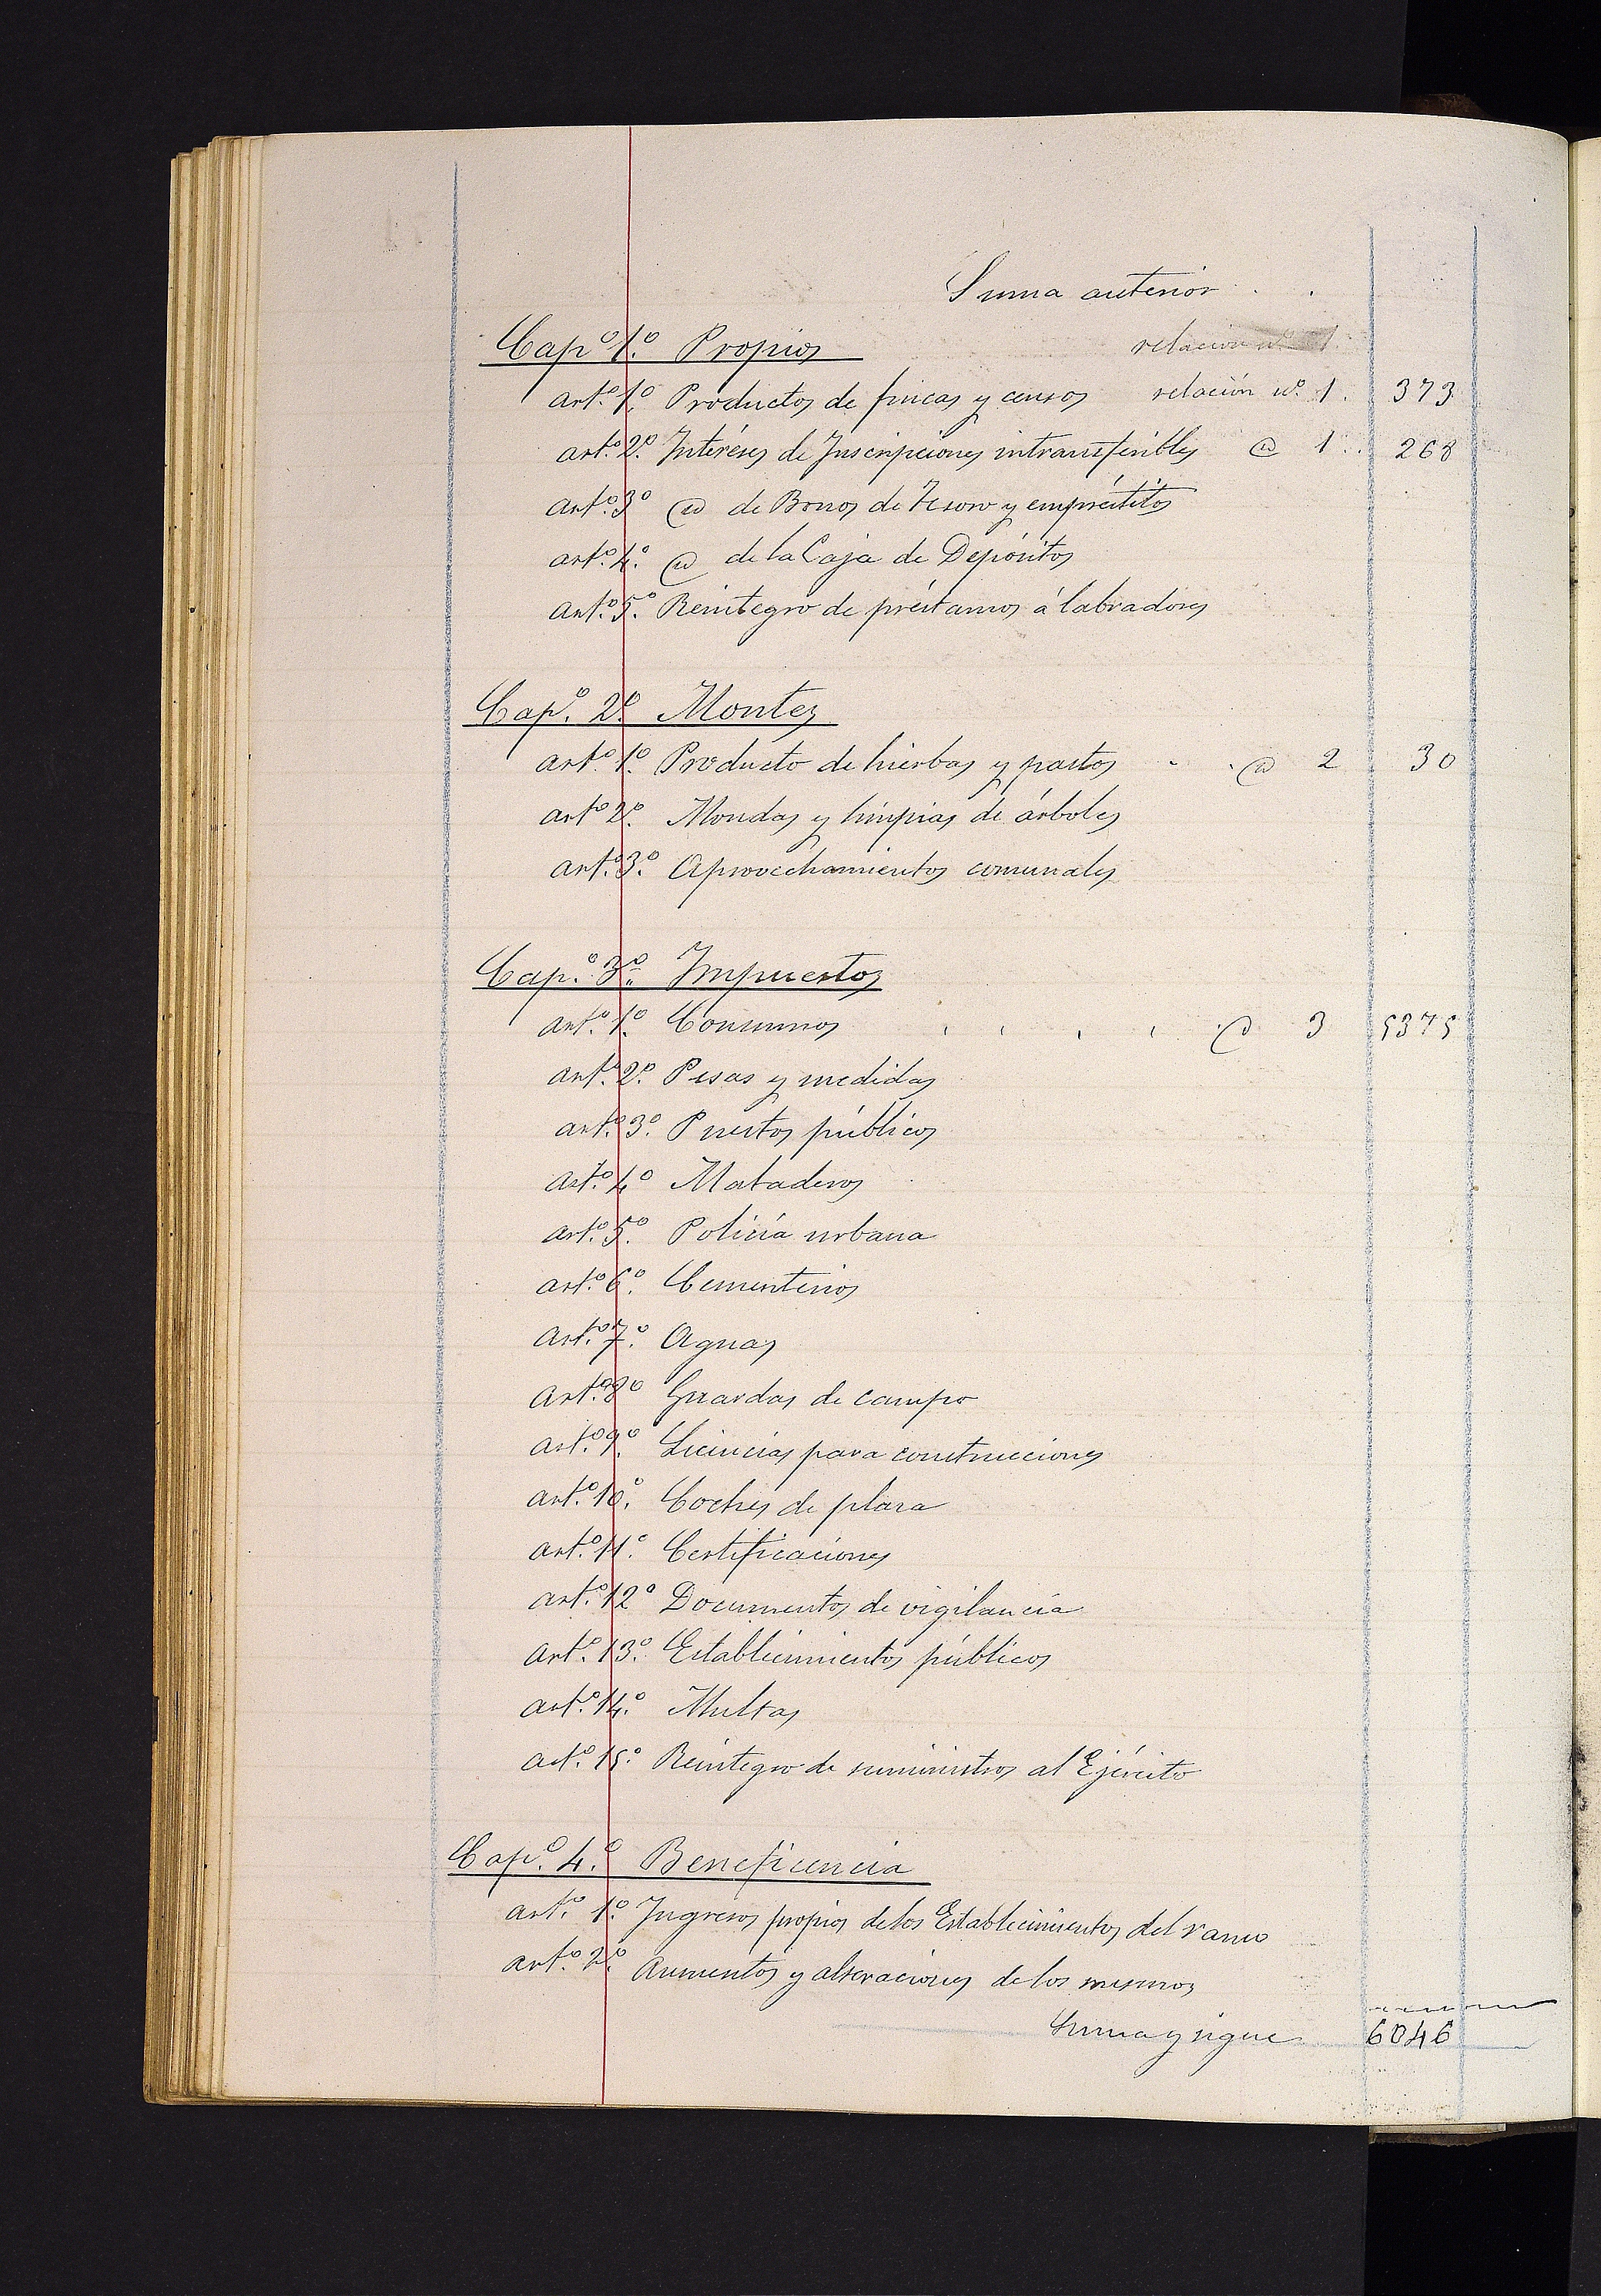 Suma anterior . .
Capº 1.º Propios relación nº 1.
artº. 1.º Productos de fincas y censos relación nº. 1. 373
artº. 2.º Intéreses de Inscripciones intransferibles @ 1 . . 268
artº. 3º @ de Bonos de Tesoro y empréstitos
artº. 4.º @ de la Caja de Depósitos
artº. 5.º Reintegro de préstamos á labradores
Capº. 2.º Montes
artº. 1.º Producto de hierbas y pastos - - @ 2 30
artº 2.º Mondas y limpias de árboles
artº. 3.º Aprovechamientos comunales
Capº. 3.º Impuestos
artº. 1.º Consumos . . . . @ 3 5375
artº. 2.º Pesas y medidas
artº. 3.º Puestos públicos
artº. 4º Mataderos
artº. 5.º Policía urbana
artº. 6.º Cementerios
artº. 7.º Aguas
artº. 8º Guardas de campo
artº. 9.º Licencias para construcciones
artº. 10.º Coches de plaza
artº. 11.º Certificaciones
artº. 12º Documentos de vigilancia
artº. 13.º Establecimientos públicos
artº. 14.º Multas
artº. 15.º Reintegro de suministros al Ejército
Capº. 4.º Beneficencia
artº. 1.º Ingresos propios de los Establecimientos del ramo
artº. 2.º Aumentos y alteraciones de los mismos
Suma y sigue 6046